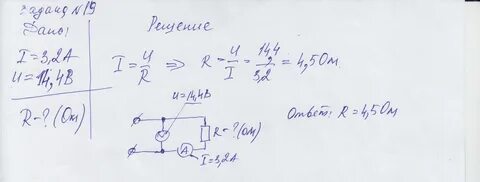 Задача №19
Дано:
I = 3,2А
U = 14,4В
R - ? (Ом)
Решение
I = U/R ⇒ R = U/I = 14,4/3,2 = 4,5 Ом
U = 14,4В
R - ? (Ом)
A
I = 3,2А
Ответ: R = 4,5 Ом